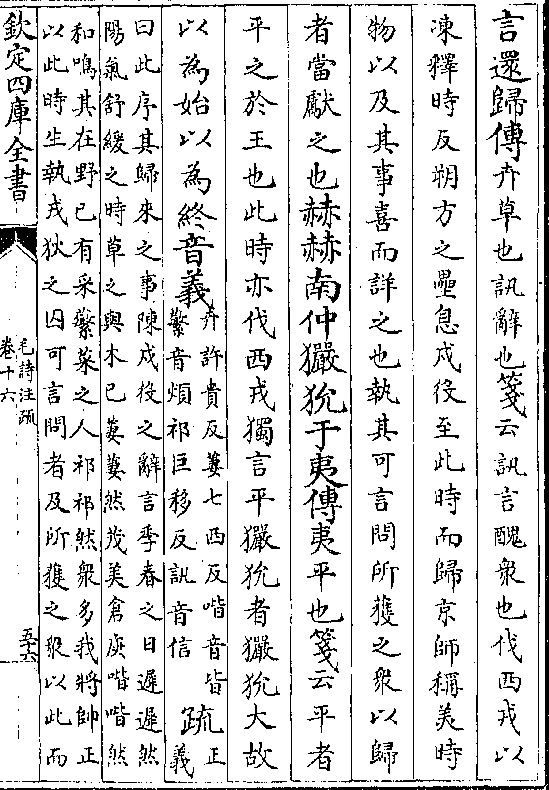 言還歸傳卉草也訊辭也箋云訊言醜衆也伐西戎以
凍釋時反朔方之壘息戍役至此時而歸京師稱美時
物以及其事喜而詳之也執其可言問所獲之衆以歸
者當獻之也赫赫南仲玁狁于夷傳夷平也箋云平者
平之於王也此時亦伐西戎獨言平玁狁者玁狁大故
以為始以為終音義
卉許貴反萋七西反喈音皆
蘩音煩祁巨移反訊音信
疏
正
義
曰此序其歸來之事陳戍役之辭言季春之日遲遲然
陽氣舒緩之時草之與木已萋萋然茂美倉庚喈喈然
和鳴其在野已有采蘩菜之人祁祁然衆多我將帥正
以此時生執戎狄之囚可言問者及所獲之衆以此而
欽定四庫全書
毛詩注疏
卷十六
五十六